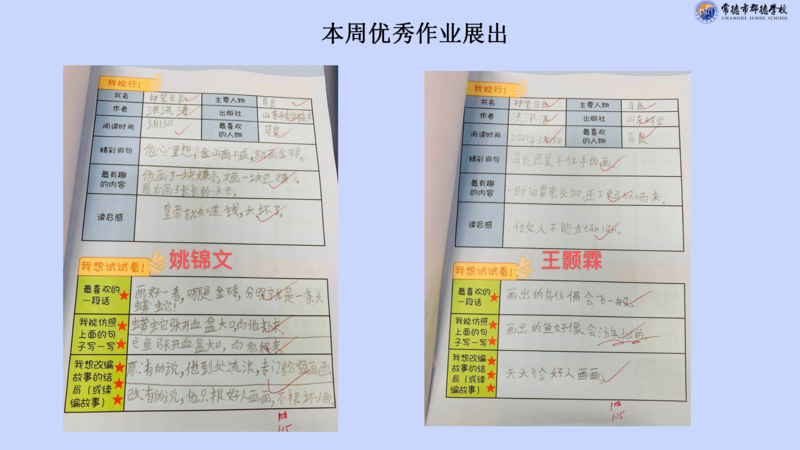 常德市郡德学校
CHANGDE JUNDE SCHOOL
本周优秀作业展出
我能行!
书名 神笔马良 主要人物 马良
作者 洪汛涛 出版社
阅读时间 3月13日 最喜欢的人物 马良
精彩词句 他心里想,金山画不成,就画金砖。
最有趣的内容 他画了一块嫌小,又画一块还嫌小,
最后画了长长的一大条。
读后感 皇帝就知道钱,太坏了。
我想试试看!
姚锦文
最喜欢的一段话 画好一看,哪是金砖,分明是一条大
蟒蛇!
我能仿照上面的句子写一写 蟒蛇张开血盆大口,向他
鱼张开血盆大口,向他
我想改编故事的结局(或续编故事) 原有的说,他到处流浪,专门给穷画画
改有的说,他只根好人画画,不根坏人画
1班
1.15
我能行!
书名 神笔马良 主要人物 马良
作者 洪汛涛 出版社
阅读时间 最喜欢的人物 马良
精彩词句 马良还是不住手的画。
最有趣的内容 一时间雷电交加,还下起了bào雨来。
读后感 做人不能太tān lán。
我想试试看!
王颢霖
最喜欢的一段话 画出的鸟仿佛会飞一般。
我能仿照上面的句子写一写 画出的鱼好像会游水似的。
我想改编故事的结局(或续编故事) 天天给好人画画。
1班
1.15